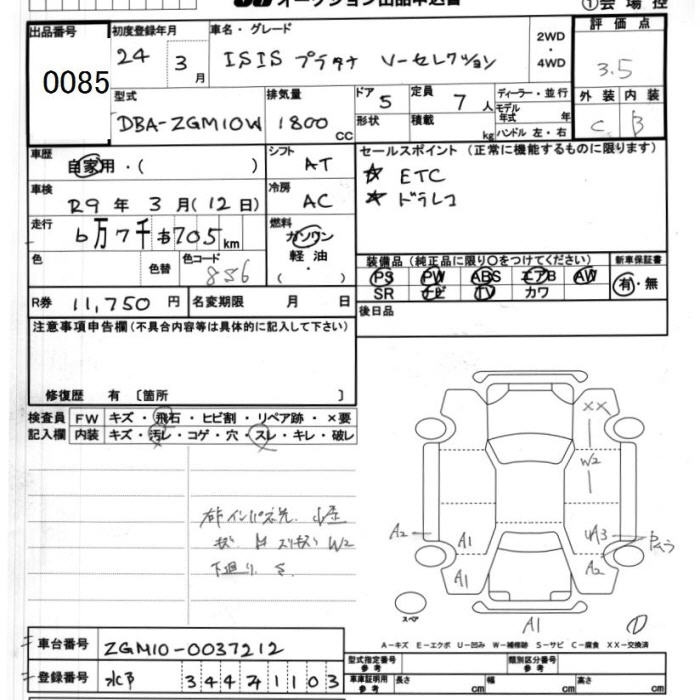 オークション出品申込書
①会場控
出品番号
0085
初度登録年月
24年 3月
車名・グレード
ISIS プラタナ V-セレクション
2WD
・
4WD
評価点
3.5
型式
DBA-ZGM10W
排気量
1800 CC
ドア 5
形状
定員 7 人
積載 kg
ディーラー・並行
モデル年式 年
ハンドル 左・右
外装 内装
C B
車歴
自家用・( )
シフト AT
セールスポイント (正常に機能するものに限ります)
☆ ETC
★ ドラレコ
車検
R9 年 3 月 (12 日)
冷房 AC
走行
6万7千705 km
燃料
ガソリン
・
軽油
( )
色
色替
色コード
装備品 (純正品に限り〇をつけてください)
新車保証書
PS PW ABS エアB AW
SR ナビ TV カワ
有・無
R券 11,750 円
名変期限 月 日
後日品
注意事項申告欄(不具合内容等は具体的に記入して下さい)
修復歴 有 〔箇所 〕
検査員記入欄
FW キズ・飛石・ヒビ割・リペア跡・×要
内装 キズ・汚レ・コゲ・穴・スレ・キレ・破レ
XX
W2
A2
A1
A1
A3
A2
A1
W2
下廻り S
スペア
A-キズ E-エクボ U-凹み W-補修跡 S-サビ C-腐食 XX-交換済
車台番号 ZGM10-0037212
登録番号 水戸 344 71103
型式指定番号 参考
類別区分番号 参考
車庫証明用 参考
長さ cm 幅 cm 高さ cm